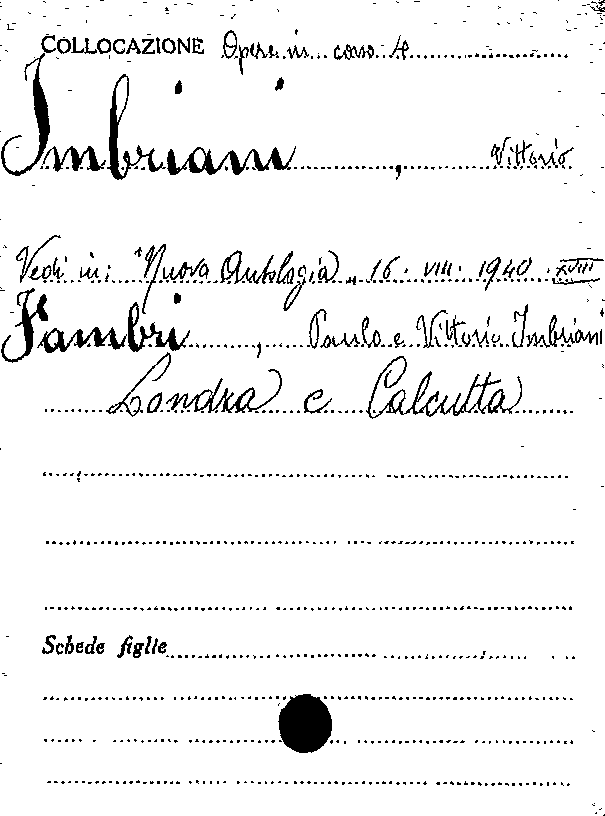 COLLOCAZIONE Opere in corso 4
Imbriani, Vittorio
Vedi in: "Nuova Antologia" 16. VIII. 1940. XVIII
Fambri, Paulo e Vittorio Imbriani
Londra e Calcutta
Schede figlie